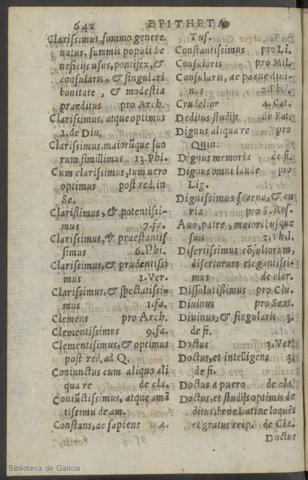 642 EPITHETA
Clarissimus, summo genere
natus, summis populi be
neficijs usus, pontifex, &
consularis, & singulari
bonitate, & modestia
præditus pro Arch.
Clarissimus, atque optimus
1. de Diu.
Clarissimus, maiorūque suo
rum simillimus 13. Phi.
Cum clarissimus, tum uero
optimus post red. in
Se.
Clarissimus, & potentissi-
mus 7. fa.
Clarissimus, & præstantis
simus 6. Phi.
Clarissimus, & prudentissi
mus 1. Ver.
Clarissimus, & spectatissi-
mus 1. fa.
Clemens pro Arch.
Clementissimus 9. fa.
Clementissimus, & optimus
post red. ad Q.
Coniunctus cum aliquo ali
qua re de cla.
Coniūctissimus, atque amā
tissimus de am.
Constans, ac sapiens 4.
Tus.
Constantissimus pro Li.
Consularis pro Mil.
Consularis, ac pæne diui-
nus 2. Phi.
Crudelior 4. Cat.
Deditus studijs de Fat.
Dignus aliqua re pro
Quin.
Dignus memoria de fi.
Dignus omni laude pro
Lig.
Dignissimus senatu, & cu
ria pro S. Ros.
Auo, patre, maioribusque
suis 2. Phil.
Disertissimus cōsulorum,
disertorum elegantissi-
mus de clar.
Dissolutissimus pro Clu.
Diuinus pro Sext.
Diuinus, & singularis 3.
de fi.
Doctus 3. Ver.
Doctus, et intelligens 3.
de fi.
Doctus a puero de cla.
Doctus, et studijs optimis de
ditus, bene Latine loquēs
et gratus resp. de Cla.
Doctus
Biblioteca de Galicia